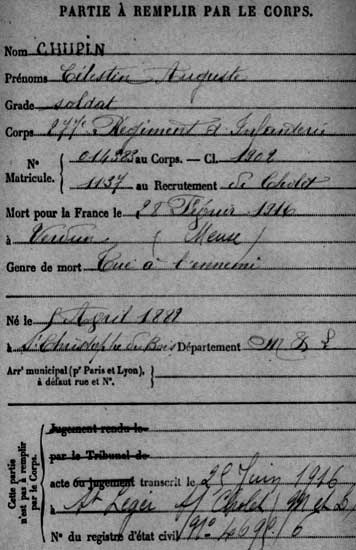 PARTIE À REMPLIR PAR LE CORPS.
Nom CHUPIN
Prénoms Célestin Auguste
Grade soldat
Corps 277e Régiment d'Infanterie
Nº Matricule. 01438 au Corps. — Cl. 1902
1137 au Recrutement de Cholet
Mort pour la France le 28 Février 1916
à Verdun (Meuse)
Genre de mort Tué à l'ennemi
Né le Avril 1882
à St Christophe du Bois Département M & L
Arrt municipal (pr Paris et Lyon), à défaut rue et Nº.
Cette partie n'est pas à remplir par le Corps.
Jugement rendu le
par le Tribunal de
acte ou jugement transcrit le 25 Juin 1916
à St Léger s/ Cholet (M et L)
Nº du registre d'état civil